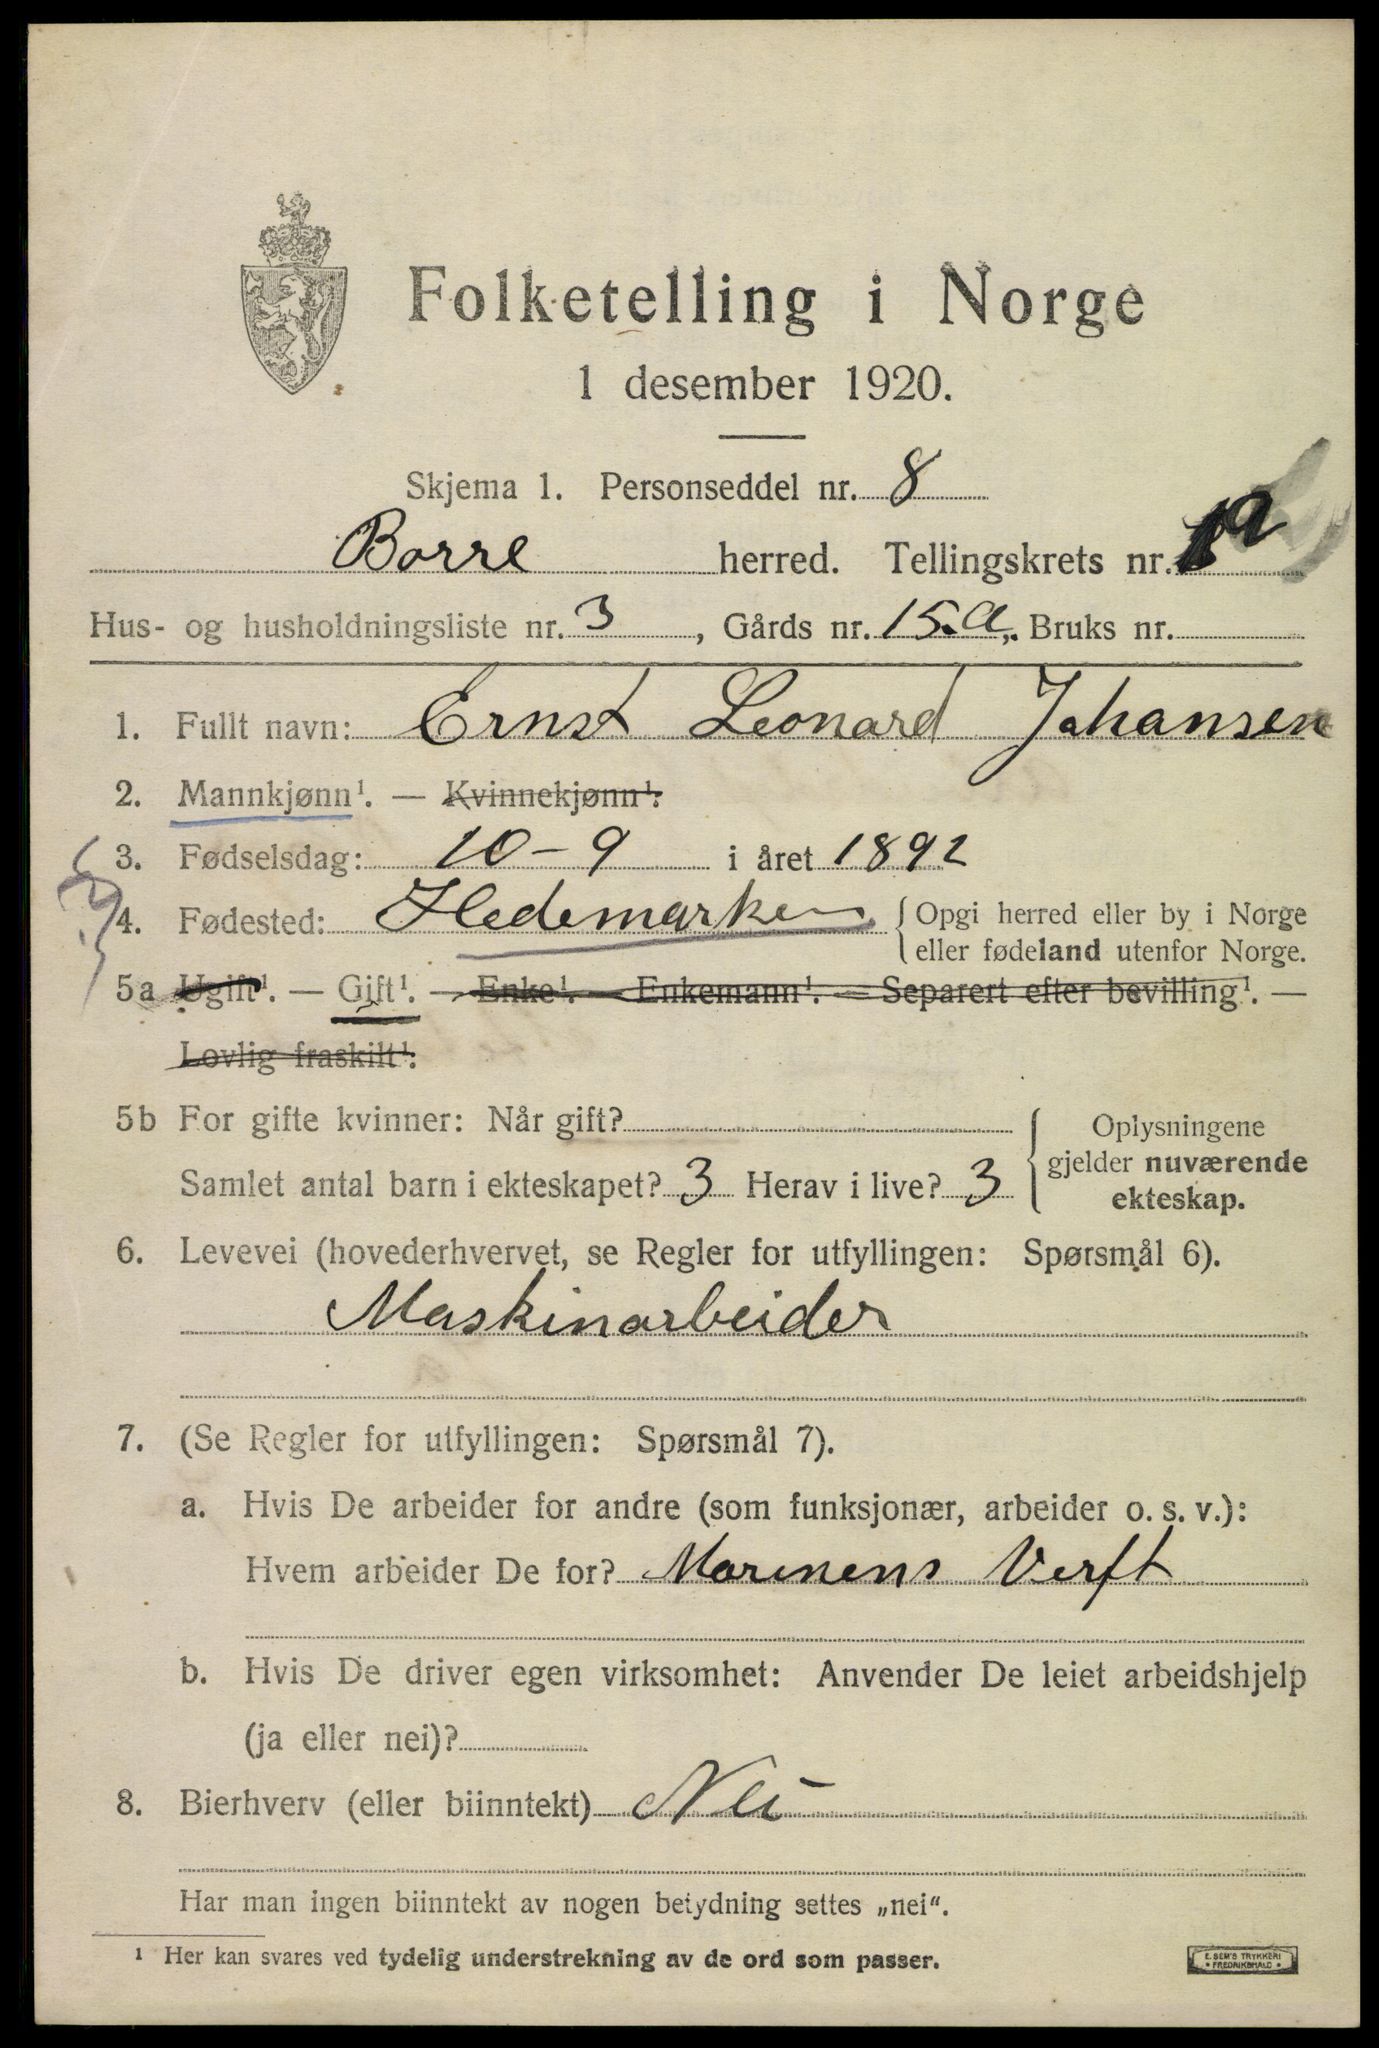 Folketelling i Norge
1 desember 1920.
Skjema 1. Personseddel nr. 8
Borre herred. Tellingskrets nr. 1a
Hus- og husholdningsliste nr. 3, Gårds nr. 15.a, Bruks nr.
1. Fullt navn: Ernst Leonard Johansen
2. Mannkjønn¹. — Kvinnekjønn¹.
3. Fødselsdag: 10-9 i året 1892
4. Fødested: Hedemarken { Opgi herred eller by i Norge
eller fødeland utenfor Norge.
5a Ugift¹. — Gift¹. — Enke¹. — Enkemann¹. — Separert efter bevilling¹. —
Lovlig fraskilt¹.
5b For gifte kvinner: Når gift? { Oplysningene
gjelder nuværende
Samlet antal barn i ekteskapet? 3 Herav i live? 3
ekteskap.
6. Levevei (hovederhvervet, se Regler for utfyllingen: Spørsmål 6).
Maskinarbeider
7. (Se Regler for utfyllingen: Spørsmål 7).
a. Hvis De arbeider for andre (som funksjonær, arbeider o. s. v.):
Hvem arbeider De for? Marinens Verft
b. Hvis De driver egen virksomhet: Anvender De leiet arbeidshjelp
(ja eller nei)?
8. Bierhverv (eller biinntekt) Nei
Har man ingen biinntekt av nogen betydning settes „nei“.
¹ Her kan svares ved tydelig understrekning av de ord som passer.
E. SEM'S TRYKKERI
• FREDRIKSHALD •